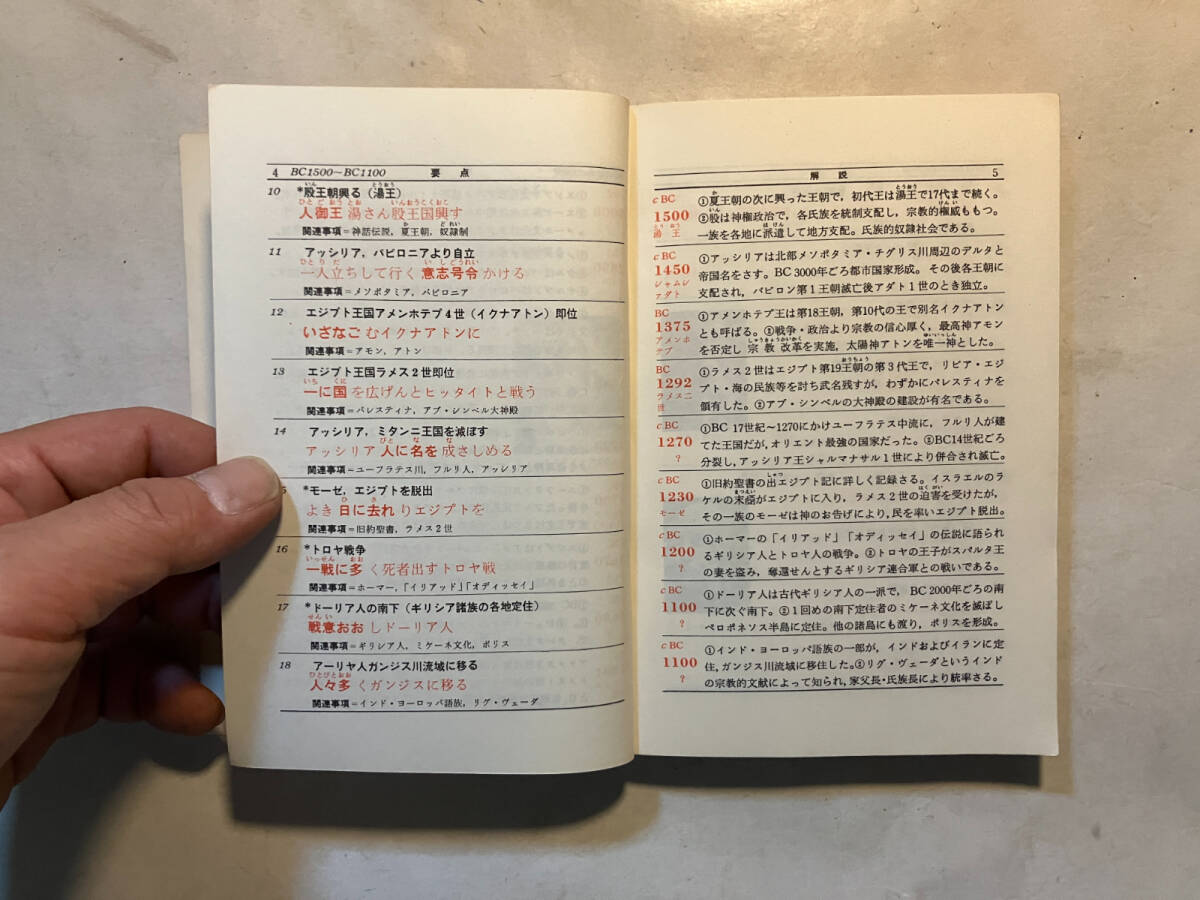 4 BC1500～BC1100 要点
10 *殷王朝興る（湯王）
人御王 湯さん殷王国興す
関連事項＝神話伝説，夏王朝，奴隷制
11 アッシリア，バビロニアより自立
一人立ちして行く 意志号令 かける
関連事項＝メソポタミア，バビロニア
12 エジプト王国アメンホテプ4世（イクナアトン）即位
いざなご むイクナアトンに
関連事項＝アモン，アトン
13 エジプト王国ラメス2世即位
一に国 を広げんとヒッタイトと戦う
関連事項＝パレスティナ，アブ・シンベル大神殿
14 アッシリア，ミタンニ王国を滅ぼす
アッシリア 人に名を 成さしめる
関連事項＝ユーフラテス川，フルリ人，アッシリア
5 *モーゼ，エジプトを脱出
よき 日に去れ りエジプトを
関連事項＝旧約聖書，ラメス2世
16 *トロヤ戦争
一戦に多 く死者出すトロヤ戦
関連事項＝ホーマー，「イリアッド」「オディッセイ」
17 *ドーリア人の南下（ギリシア諸族の各地定住）
戦意おお しドーリア人
関連事項＝ギリシア人，ミケーネ文化，ポリス
18 アーリヤ人ガンジス川流域に移る
人々多 くガンジスに移る
関連事項＝インド・ヨーロッパ語族，リグ・ヴェーダ
解説 5
cBC 1500 湯王
①夏王朝の次に興った王朝で，初代王は湯王で17代まで続く。
②殷は神権政治で，各氏族を統制支配し，宗教的権威ももつ。
一族を各地に派遣して地方支配。氏族的奴隷社会である。
cBC 1450 シャムシアダト
①アッシリアは北部メソポタミア・チグリス川周辺のデルタと
帝国名をさす。BC3000年ごろ都市国家形成。その後各王朝に
支配され，バビロン第1王朝滅亡後アダト1世のとき独立。
BC 1375 アメンホテプ
①アメンホテプ王は第18王朝，第10代の王で別名イクナアトン
とも呼ばる。②戦争・政治より宗教の信心厚く，最高神アモン
を否定し宗教改革を実施，太陽神アトンを唯一神とした。
BC 1292 ラメス二世
①ラメス2世はエジプト第19王朝の第3代王で，リビア・エジ
プト・海の民族等を討ち武名残すが，わずかにパレスティナを
領有した。②アブ・シンベルの大神殿の建設が有名である。
cBC 1270 ?
①BC17世紀～1270にかけユーフラテス中流に，フルリ人が建
てた王国だが，オリエント最強の国家だった。②BC14世紀ごろ
分裂し，アッシリア王シャルマナサル1世により併合され滅亡。
cBC 1230 モーゼ
①旧約聖書の出エジプト記に詳しく記録さる。イスラエルのラ
ケルの末裔がエジプトに入り，ラメス2世の迫害を受けたが，
その一族のモーゼは神のお告げにより，民を率いエジプト脱出。
cBC 1200 ?
①ホーマーの「イリアッド」「オディッセイ」の伝説に語られ
るギリシア人とトロヤ人の戦争。②トロヤの王子がスパルタ王
の妻を盗み，奪還せんとするギリシア連合軍との戦いである。
cBC 1100 ?
①ドーリア人は古代ギリシア人の一派で，BC2000年ごろの南
下に次ぐ南下。②1回めの南下定住者のミケーネ文化を滅ぼし
ペロポネソス半島に定住。他の諸島にも渡り，ポリスを形成。
cBC 1100 ?
①インド・ヨーロッパ語族の一部が，インドおよびイランに定
住，ガンジス川流域に移住した。②リグ・ヴェーダというインド
の宗教的文献によって知られ，家父長・氏族長により統率さる。